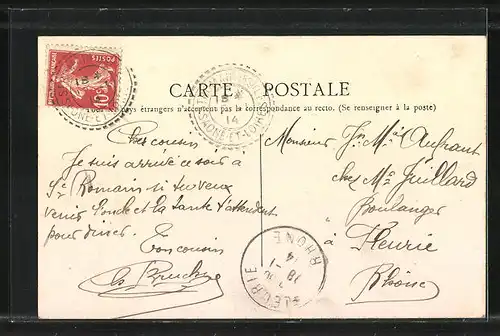 CARTE POSTALE
Tous les pays étrangers n'acceptent pas la correspondance au recto. (Se renseigner à la poste)
POSTES
10c
SAONE-ET-LOIRE
14
Cher cousin
Je suis arrivé ce soir à
St Romain si tu veux
venir l'oncle et la tante t'attendent
pour diner.
Ton cousin
Monsieur
chez Mr Juillard
Boulanger
à Fleurie
Rhône
FLEURIE
RHONE
18 -1
14